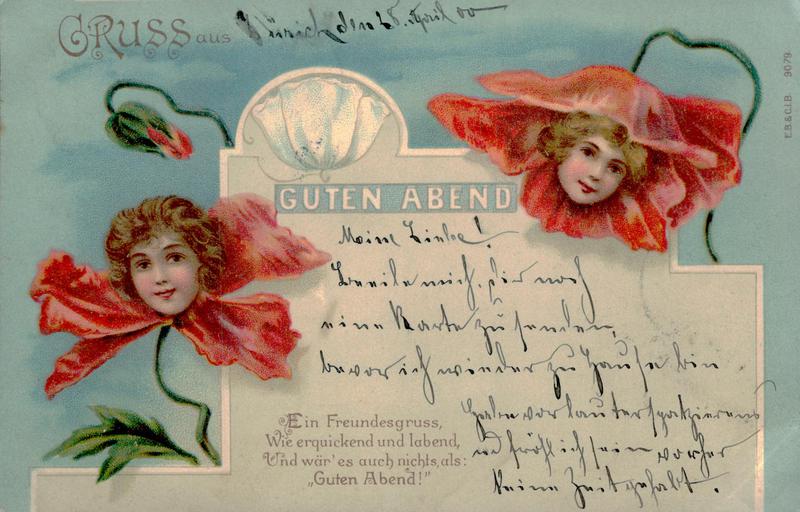 GRUSS aus Zürich den 28. April 00
GUTEN ABEND
Meine Liebe!
Beeile mich, dir noch
eine Karte zu senden,
bevor ich wieder zu Hause bin
Habe vor lauter spatzieren
und fröhlich sein vorher
keine Zeit gehabt.
Ein Freundesgruss,
Wie erquickend und labend,
Und wär' es auch nichts, als:
„Guten Abend!"
E.B. & C.i.B. 9079